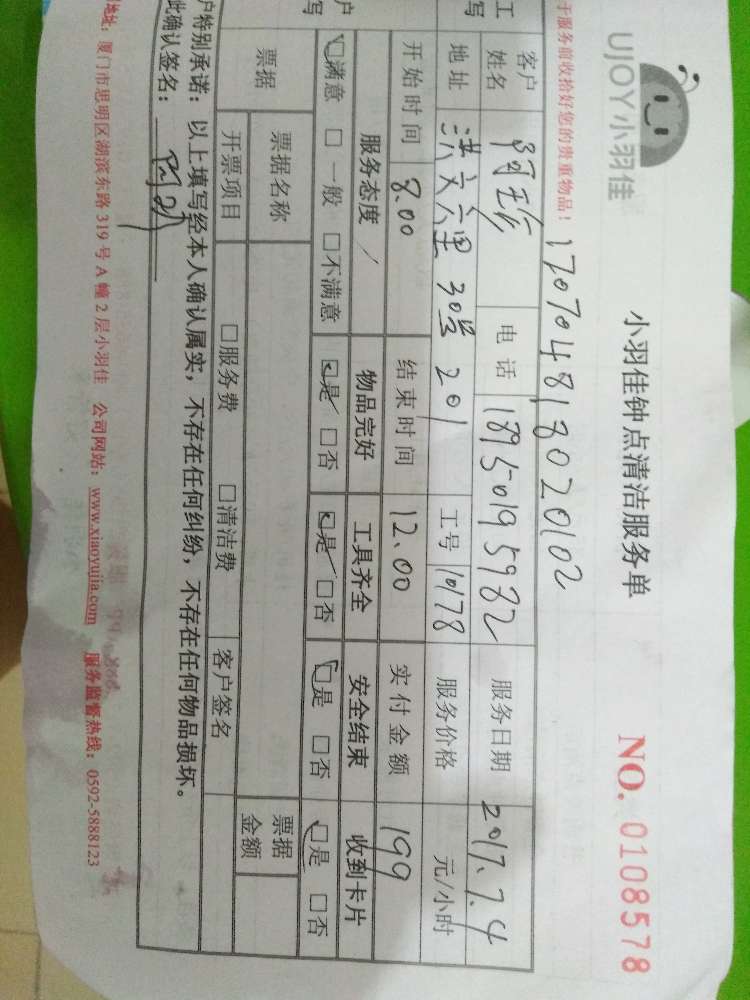 UJOY小羽佳
小羽佳钟点清洁服务单
NO. 0108578
于服务前收拾好您的贵重物品!
17070481302 0102
工
写
客户姓名 阿珍 电话 18950195982 服务日期 2017.7.4
地址 洪文六里 30号 201 工号 10178 服务价格 元/小时
开始时间 8.00 结束时间 12.00 实付金额 199
户
写
服务态度 物品完好 工具齐全 安全结束 收到卡片
☑满意 □一般 □不满意 ☑是 □否 ☑是 □否 ☑是 □否 ☑是 □否
票据 票据名称 票据金额
开票项目 □服务费 □清洁费 客户签名
户特别承诺:以上填写经本人确认属实,不存在任何纠纷,不存在任何物品损坏。
此确认签名:
地址:厦门市思明区湖滨东路 319 号 A 幢 2 层小羽佳 公司网站:www.xiaoyujia.com 服务监督热线:0592-5888123